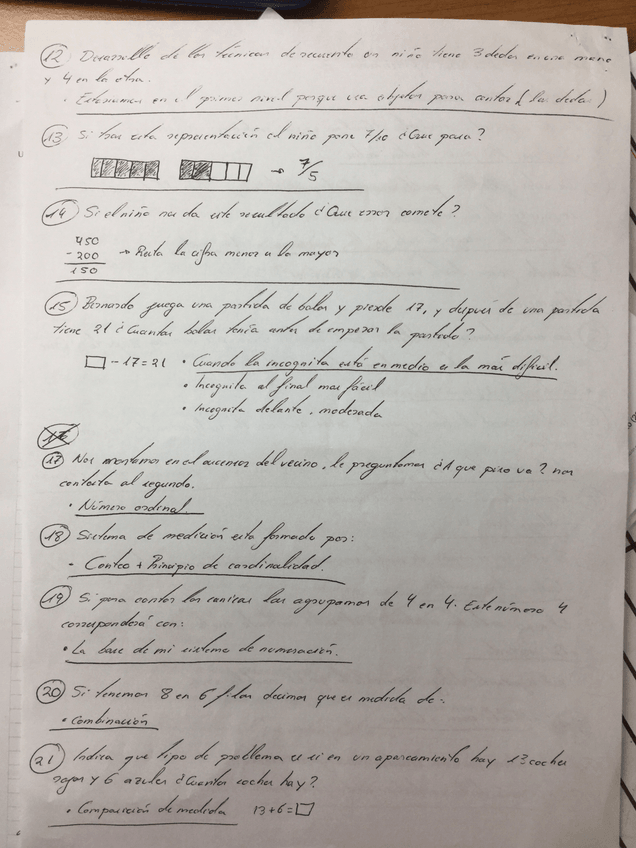 12 Desarrollo de las técnicas de recuento un niño tiene 3 dedos en una mano
y 4 en la otra.
• Estaríamos en el primer nivel porque usa objetos para contar (los dedos)
13 Si tras esta representación el niño pone 7/10 ¿Que pasa?
→ 7/5
14 Si el niño nos da este resultado ¿Que error comete?
450
- 200 → Resta la cifra menor a la mayor
150
15 Bernardo juega una partida de bolas y pierde 17, y después de una partida
tiene 21 ¿Cuantas bolas tenía antes de empezar la partida?
□ - 17 = 21 • Cuando la incognita está en medio es la más difícil.
• Incognita al final mas fácil
• incognita delante, moderada
16
17 Nos montamos en el ascensor del vecino, le preguntamos ¿A que piso va? nos
contesta al segundo.
• Número ordinal
18 Sistema de medición esta formado por:
- Conteo + Principio de cardinalidad.
19 Si para contar las canicas las agrupamos de 4 en 4. Este número 4
corresponderá con:
• La base de mi sistema de numeración.
20 Si tenemos 8 en 6 filas decimos que es medida de:
• Combinación
21 Indica que tipo de problema es si en un aparcamiento hay 13 coches
rojos y 6 azules ¿Cuantos coches hay?
• Composición de medida 13+6=□